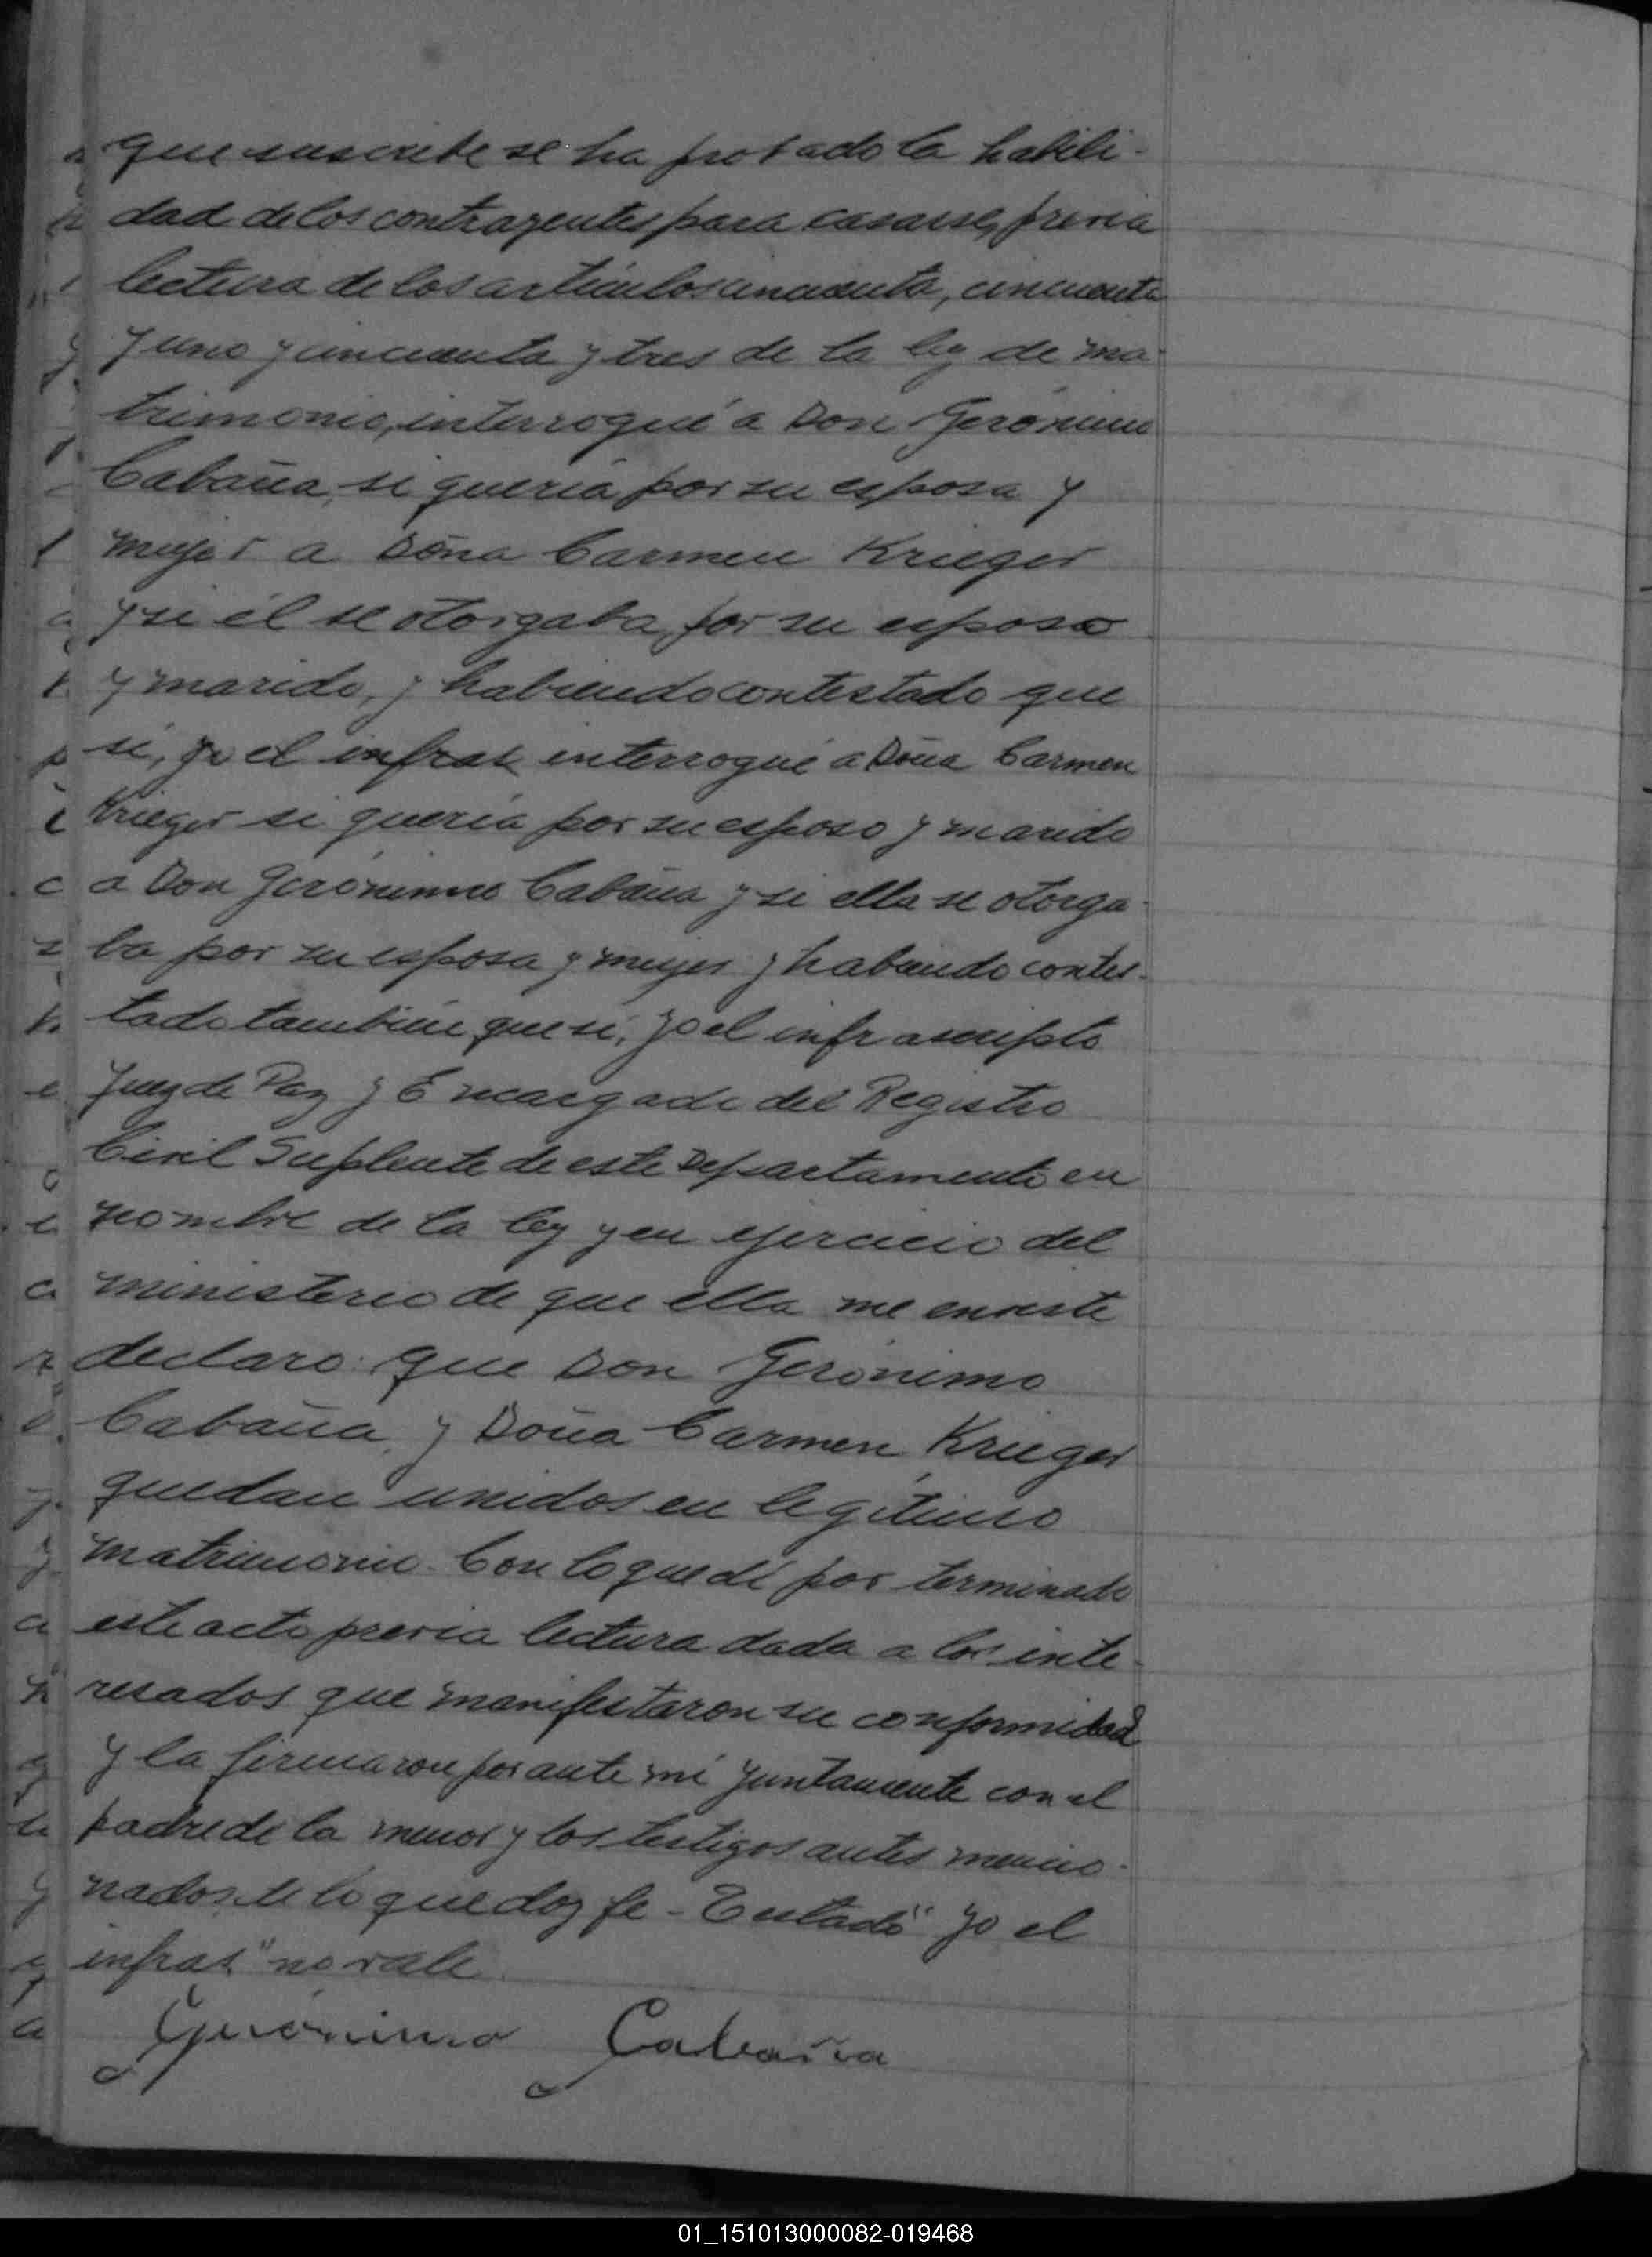 que suscribe se ha probado la habili-
dad de los contrayentes para casarse, previa
lectura de los artículos cincuenta, cincuenta
y uno y cincuenta y tres de la ley de ma-
trimonio, interrogué a Don Gerónimo
Cabaña, si quería por su esposa y
mujer a Doña Carmen Krieger
y si él se otorgaba, por su esposo
y marido, y habiendo contestado que
sí, yo el infras interrogué a Doña Carmen
Krieger si quería por su esposo y marido
a Don Gerónimo Cabaña y si ella se otorga-
ba por su esposa y mujer y habiendo contes-
tado también que sí, yo el infrascripto
Juez de Paz y Encargado del Registro
Civil Suplente de este Departamento en
nombre de la ley y en ejercicio del
ministerio de que ella me enviste
declaro: que Don Gerónimo
Cabaña, y Doña Carmen Krieger
quedan unidos en legítimo
matrimonio. Con lo que dí por terminado
este acto previa lectura dada a los inte-
resados que manifestaron su conformidad
y la firmaron por ante mí juntamente con el
padre de la menor y los testigos antes mencio-
nados de lo que doy fe - Entado "yo el
infras" no vale.
Gerónimo Cabaña
01_151013000082-019468